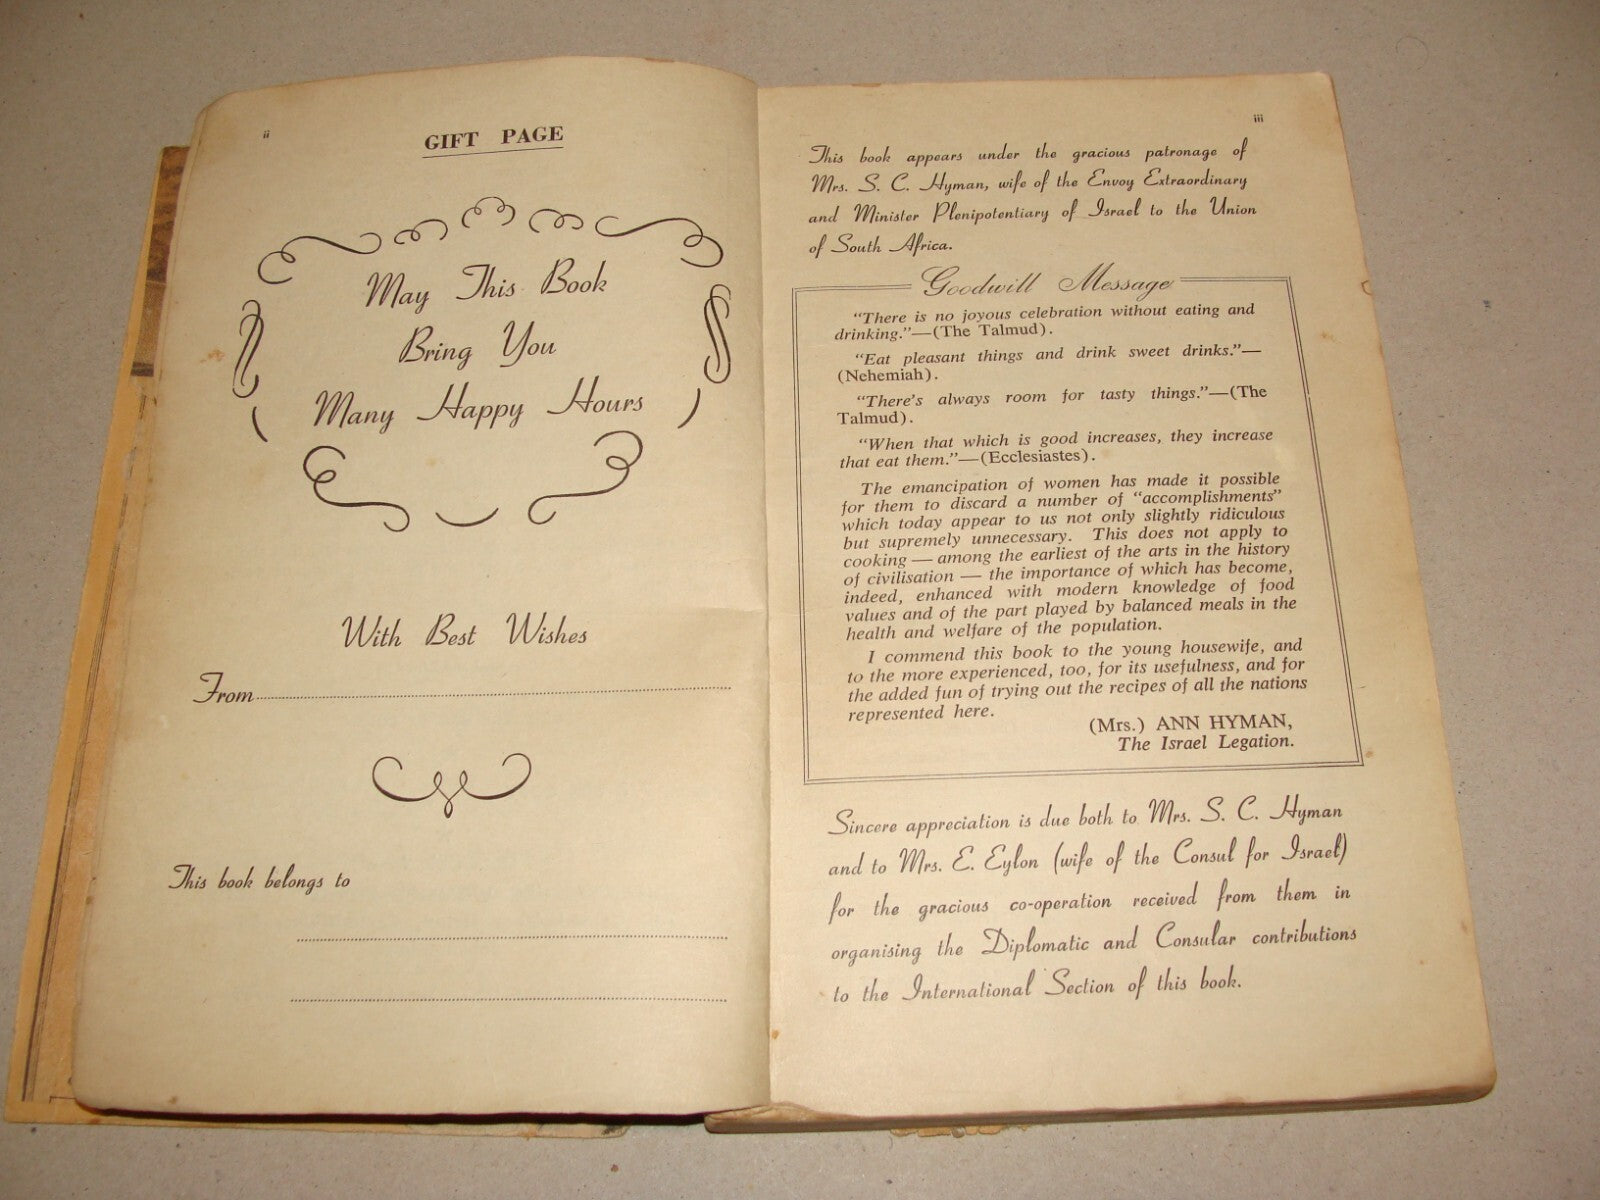 ii
GIFT PAGE
May This Book
Bring You
Many Happy Hours
With Best Wishes
From
This book belongs to
iii
This book appears under the gracious patronage of
Mrs. S. C. Hyman, wife of the Envoy Extraordinary
and Minister Plenipotentiary of Israel to the Union
of South Africa.
Goodwill Message
"There is no joyous celebration without eating and
drinking."—(The Talmud).
"Eat pleasant things and drink sweet drinks."—
(Nehemiah).
"There's always room for tasty things."—(The
Talmud).
"When that which is good increases, they increase
that eat them."—(Ecclesiastes).
The emancipation of women has made it possible
for them to discard a number of "accomplishments"
which today appear to us not only slightly ridiculous
but supremely unnecessary. This does not apply to
cooking — among the earliest of the arts in the history
of civilisation — the importance of which has become,
indeed, enhanced with modern knowledge of food
values and of the part played by balanced meals in the
health and welfare of the population.
I commend this book to the young housewife, and
to the more experienced, too, for its usefulness, and for
the added fun of trying out the recipes of all the nations
represented here.
(Mrs.) ANN HYMAN,
The Israel Legation.
Sincere appreciation is due both to Mrs. S. C. Hyman
and to Mrs. E. Eylon (wife of the Consul for Israel)
for the gracious co-operation received from them in
organising the Diplomatic and Consular contributions
to the International Section of this book.